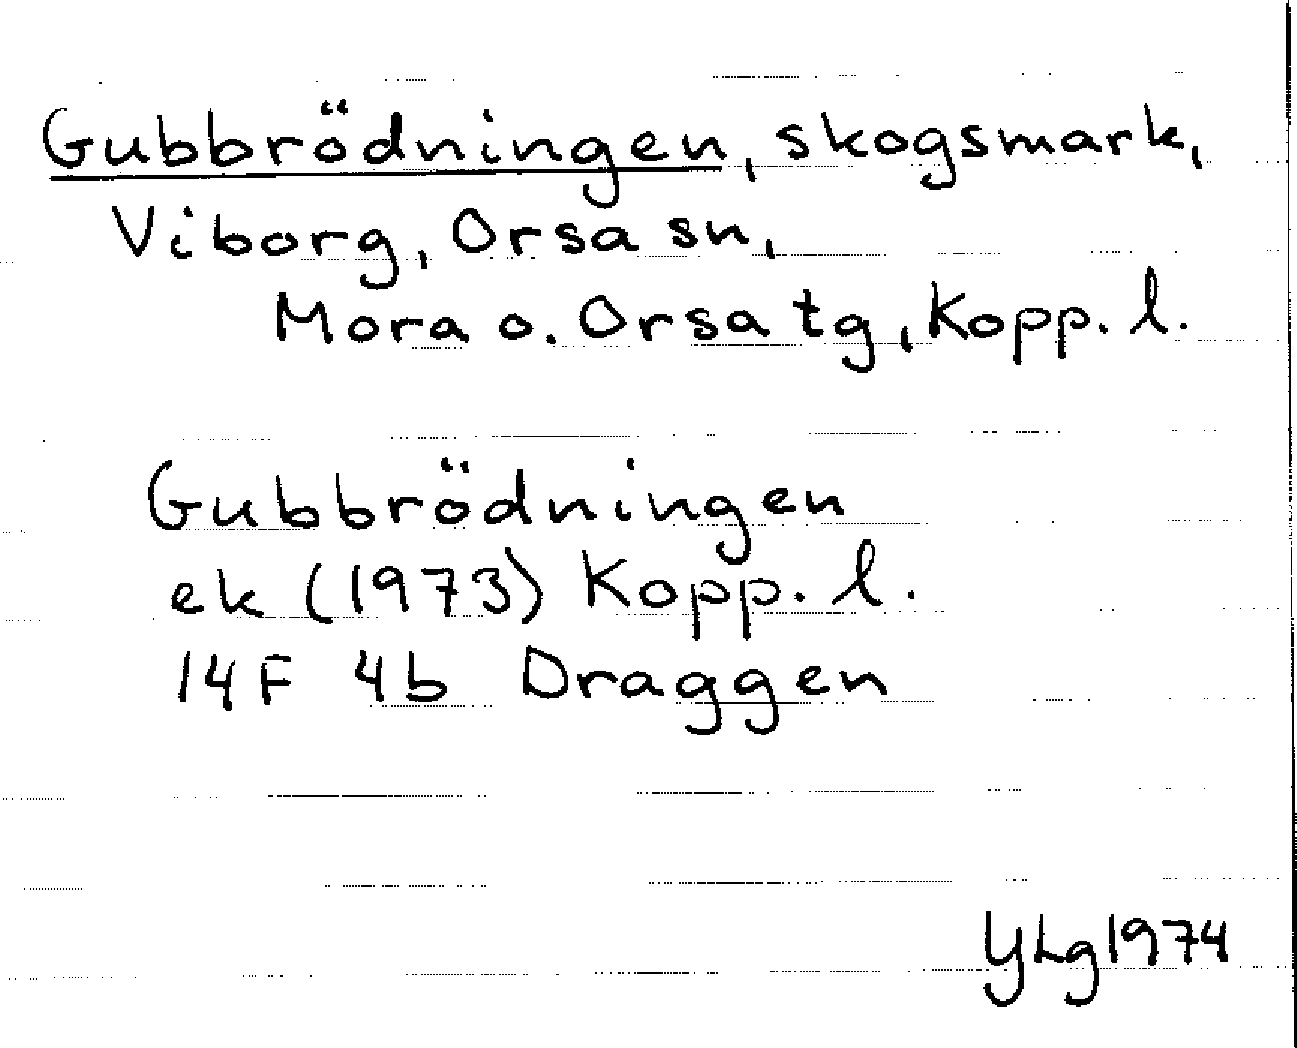 Gubbrödningen, skogsmark,
Viborg, Orsa sn,
Mora o. Orsa tg, Kopp. l.
Gubbrödningen
ek (1973) Kopp. l.
14F 4b Draggen
YLg 1974